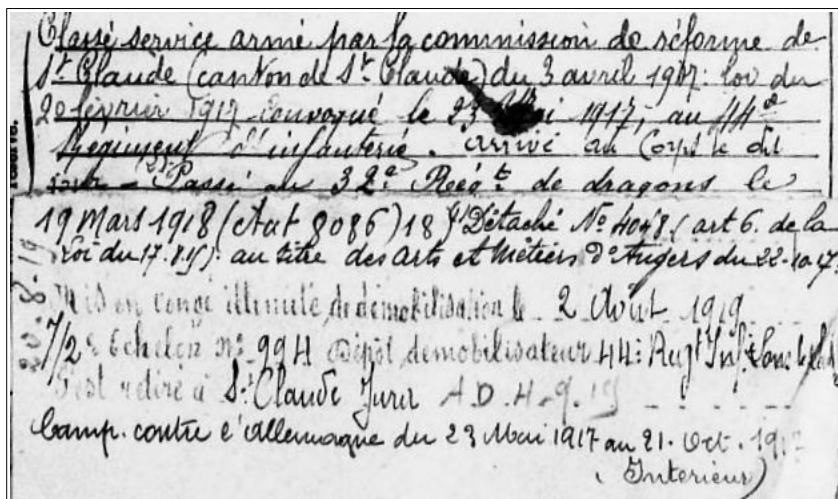 Classé service armé par la commission de réforme de
St Claude (canton de St Claude) du 3 avril 1917: loi du
20 février 1917 convoqué le 23 Mai 1917, au 44e
Régiment d'infanterie. arrivé au Corps le dit
jour - Passé au 32e Régt de dragons le
19 Mars 1918 (Aut 8086) 18 Détaché No 4048 (art 6. de la
Loi du 17.8.15) au titre des Arts et Métiers d'Angers du 22-10-17
Mis en congé illimité de démobilisation le 2 Août 1919
7/2e échelon no 994 Dépôt démobilisateur 44e Regt Inf. Lons le
S'est retiré à St Claude Jura A.D. 4-9.19
Camp. contre l'Allemagne du 23 Mai 1917 au 21. Oct. 1917
(Intérieur)
20-8-19